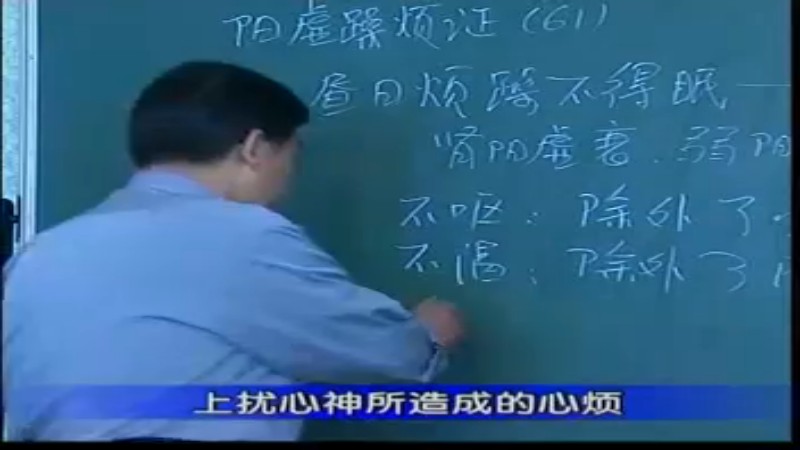 阳虚躁烦证(61)
昼日烦躁不得眠—
肾阳虚衰.弱阳
不呕:除外了
不渴:除外了
上扰心神所造成的心烦